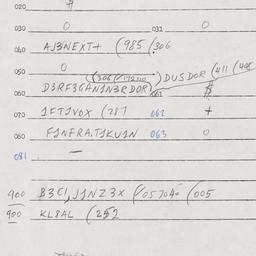 020 $
030 0 031 0
040 AJ3NEXT+ (985 (306
050 0 DUSDOR (411 (405
060 D3RF3GAN1N3RDOR) 061 $
070 1FT1VOX (787 062 +
080 F1NFRA.T1KU1N 063 0
081 —
900 B3C1, J1NZ3X (057040 (005
900 KL8AL (252